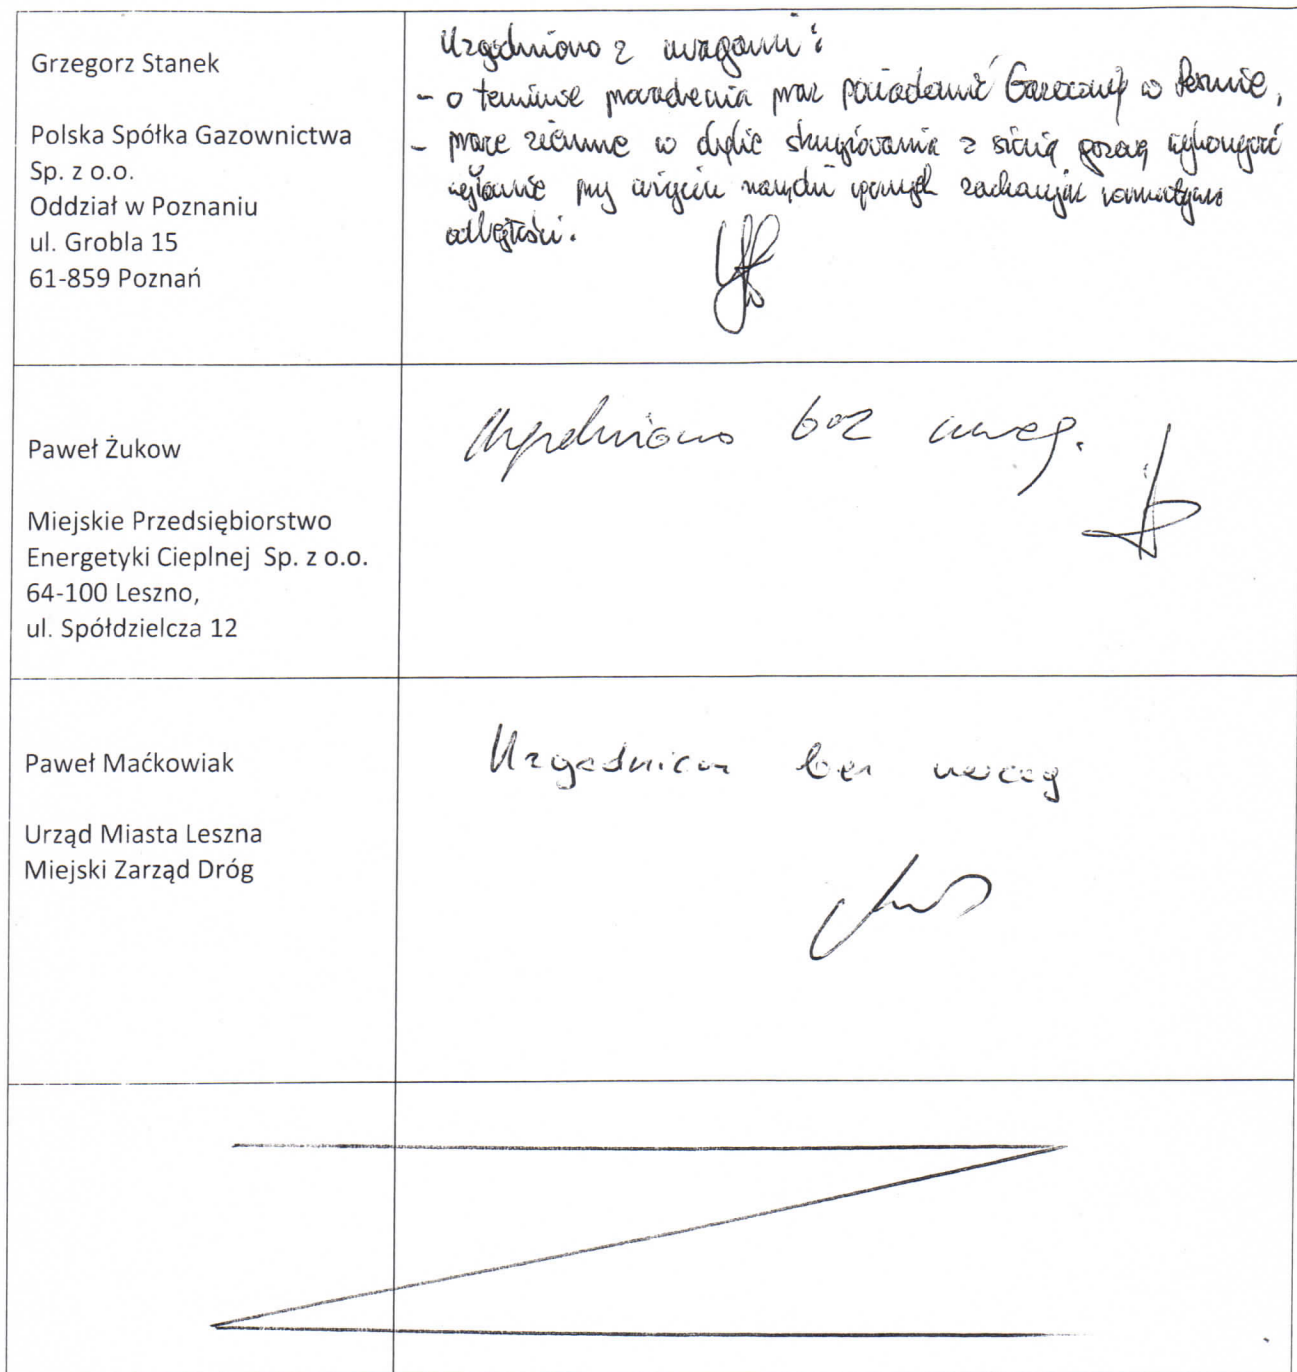 Grzegorz Stanek
Polska Spółka Gazownictwa
Sp. z o.o.
Oddział w Poznaniu
ul. Grobla 15
61-859 Poznań
Uzgodniono z uwagami:
- o terminie prowadzenia prac powiadomić Gazownię w Lesznie,
- prace ziemne w skrzyżowania z siecią gazową wykonywać
wyłącznie przy użyciu narzędzi ręcznych zachowując normatywne
odległości.
Paweł Żukow
Miejskie Przedsiębiorstwo
Energetyki Cieplnej Sp. z o.o.
64-100 Leszno,
ul. Spółdzielcza 12
Uzgodniono bez uwag.
Paweł Maćkowiak
Urząd Miasta Leszna
Miejski Zarząd Dróg
bez uwag